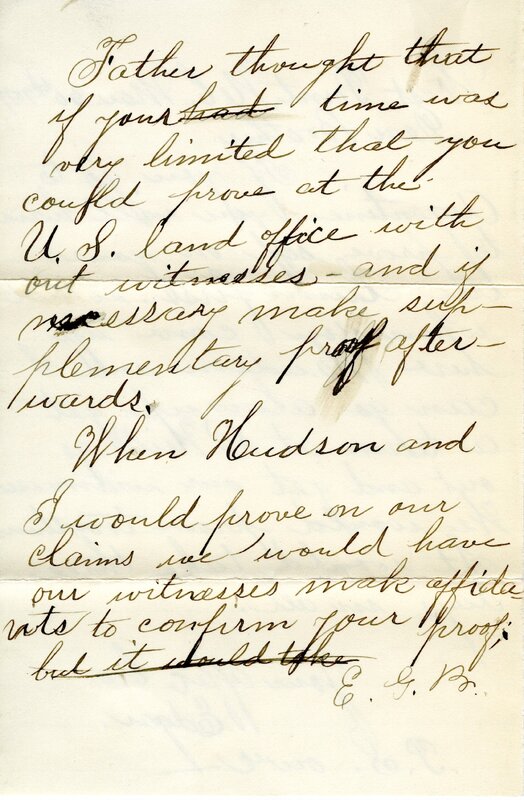 Father thought that
if your had time was
very limited that you
could prove at the
U. S. land office with
out witnesses - and if
necessary make sup-
plementary proof after-
wards.
When Hudson and
I would prove on our
claims we would have
our witnesses make affida
vits to confirm your proof;
but it would take
E. G. B.